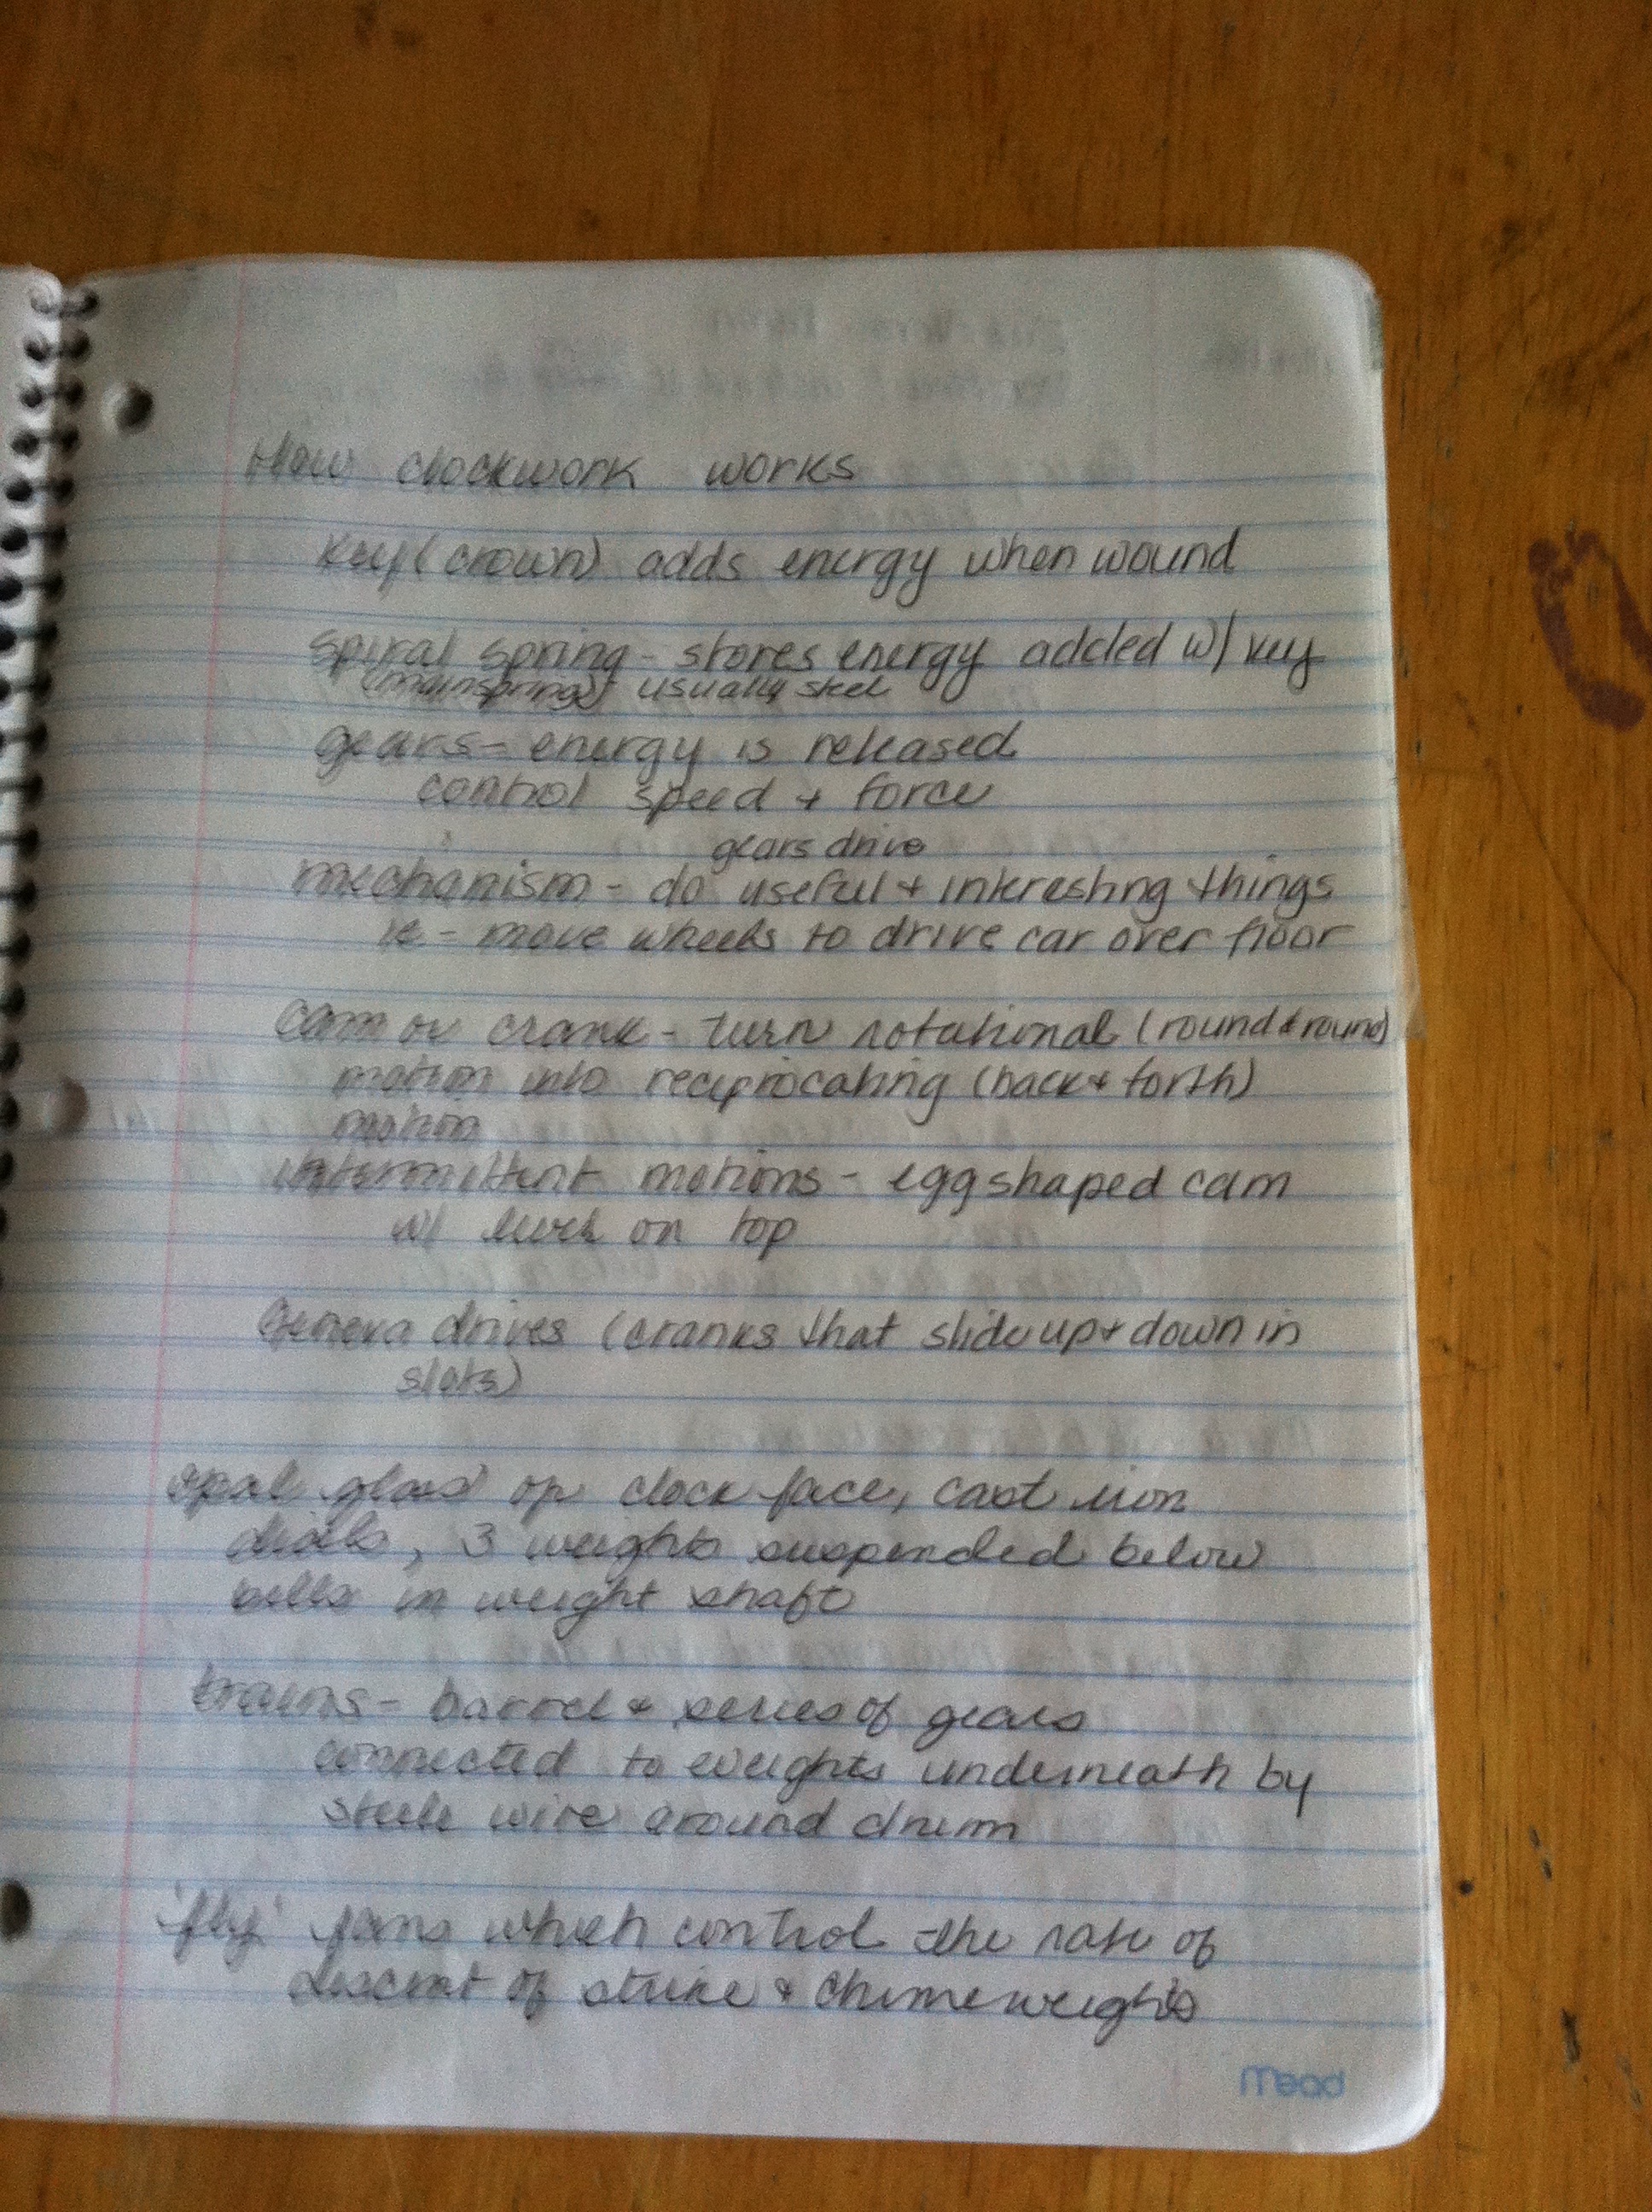 How clockwork works
key (crown) adds energy when wound
spiral spring - stores energy added w/ key
(mainspring) usually steel
gears - energy is released
control speed + force
gears drive
mechanism - do useful + interesting things
ie - move wheels to drive car over floor
cam or crank - turn rotational (round & round)
motion into reciprocating (back + forth)
motion
intermittent motions - egg shaped cam
w/ lever on top
Geneva drives (cranks that slide up + down in
slots)
opal glass on clock face, cast iron
dials, 3 weights suspended below
bells in weight shaft
trains - barrel & series of gears
connected to weights underneath by
steele wire around drum
'fly' fans which control the rate of
descent of strike & chime weights
Mead